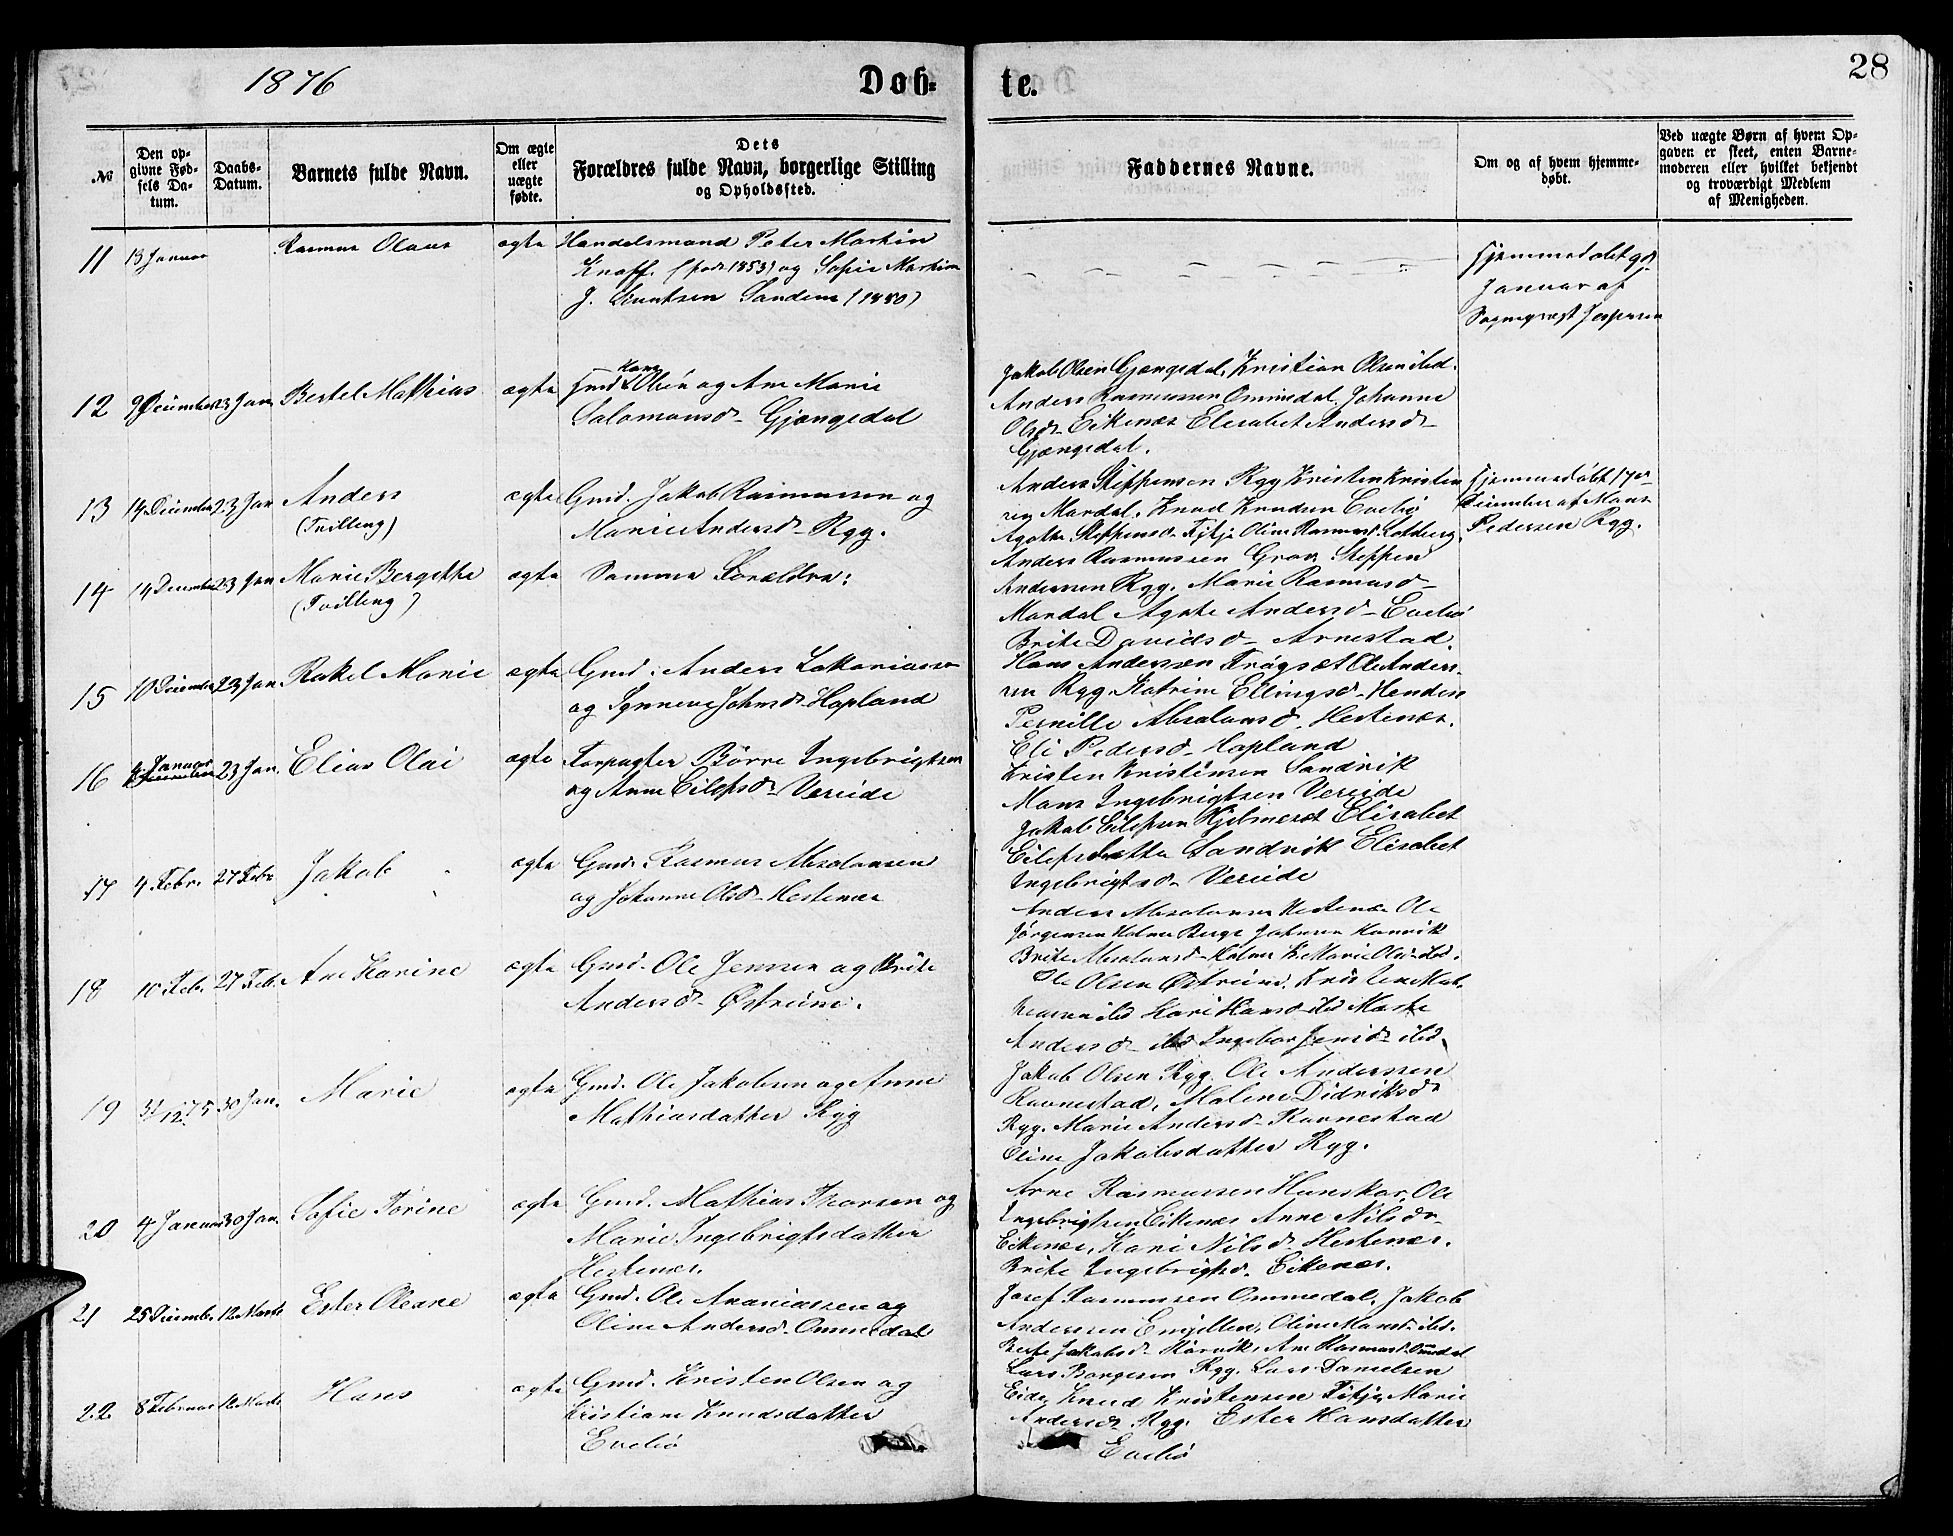 1876
Døb-
te.
28
№
Den opgivne Fødsels Datum.
Daabs-Datum.
Barnets fulde Navn.
Om ægte eller uægte fødte.
Dets Forældres fulde Navn, borgerlige Stilling og Opholdssted.
Faddernes Navne.
Om og af hvem hjemmedøbt.
Ved uægte Børn af hvem Opgaven er skeet, enten Barnemoderen eller hvilket bekjendt og troværdigt Medlem af Menigheden.
11 13 Januar Rasmus Olaus ægte Handelsmand Peter Martin
Knoff. (født 1853) og Sofie
J. Sandene (1850)
Hjemmedøbt
Januar af
Sognepræst Jespersen
12 9 December 23 Jan Bertel Mathias ægte Gmd Hans Olsen og Ane Marie
Salomonsd- Gjengedal
Jakob Olsen Gjengedal, Kristian Olsen ibd.
Anders Rasmussen Ommedal, Johanne
Olsd- Eikenæs Elisabet Andersd-
Gjengedal.
13 14 December 23 Jan Anders
(Tvilling)
ægte Gmd. Jakob Rasmussen og
Marie Andersd- Ryg.
Anders Steffensen Ryg Kristen Kristen
sen Mardal, Knud Knudsen Evebø
Agathe Steffensd- Fitje Oline Rasmusd
Hjemmedøbt 17de
December af Mons
Pedersen Ryg.
14 14 December 23 Jan Marie Bergithe
(Tvilling)
ægte Samme Forældre:
Anders Rasmussen Grov Steffen
Andersen Ryg. Marie Rasmusd-
Mardal Agate Andersd- Evebø
Brite Davidsd- Arnestad.
15 10 December 23 Jan. Rakel Marie ægte Gmd: Anders Zakariassen
og Synneve Johnsd- Hopland
Hans Andersen Trøgsæt Ole Anders-
sen Ryg Katrine Ellingsd-
Pernille Absalonsd- Hestenæs.
Eli Pedersd- Hopland
16 Januar 23 Jan. Elias Olai ægte Forpagter Børre Ingebrigtsen
og Anne Eilefsd- Vereide
Kristen Kristensen Sandvik
Mons Ingebrigtsen Vereide
Jakob Eilefsen Elisabet
Eilefsdatter Sandvik Elisabet
Ingebrigtsd- Vereide
17 4 Febr. 27 Febr Jakob ægte Gmd. Rasmus Absalonsen
og Johanne Olsd- Hestenæs
Anders Absalonsen Hestenæs Ole
Jørgensen Holme Børge Johnsen
Brite Absalonsd- Holme Marie Olsd- ibd.
18 10 Feb. 27 Feb. Ane Karine ægte Gmd. Ole Jensen og Brite
Andersd- Østreim.
Ole Olsen Østreim. Kristen
ibd Kari Hansd- ibd Marte
Andersd- ibd Ingebor Jensd- ibd.
19 31/12 75 30 Jan. Marie ægte Gmd. Ole Jakobsen og Anne
Mathiasdatter Ryg
Jakob Olsen Ryg. Ole Andersen
Ravnestad, Malene Didriksd-
Ryg. Marie Andersd- Ravnestad
Oline Jakobsdatter Ryg.
20 4 Januar 30 Jan. Sofie Torine ægte Gmd. Mathias Thorsen og
Marie Ingebrigtsdatter
Hestenæs.
Arne Rasmussen Hunskor, Ole
Ingebrigtsen Eikenæs Anne Nilsd-
Eikenæs, Kari Nilsd- Hestenæs.
Brite Ingebrigtsd. Eikenæs.
21 25 December 12 Marts Ester Oleane ægte Gmd. Ole Ananiassen og
Oline Andersd- Ommedal
Josef Rasmussen Ommedal, Jakob
Andersen Oline Monsd- ibd.
Jakobsd- Ane Rasmusd- Ommedal
22 8 Februar 12 Marts Hans ægte Gmd. Kristen Olsen og
Kristiane Knudsdatter
Evebø
Lars Ryg. Lars Danielsen
Eide, Knud Kristensen Fitje, Marie
Andersd- Ryg. Ester Hansdatter
Evebø